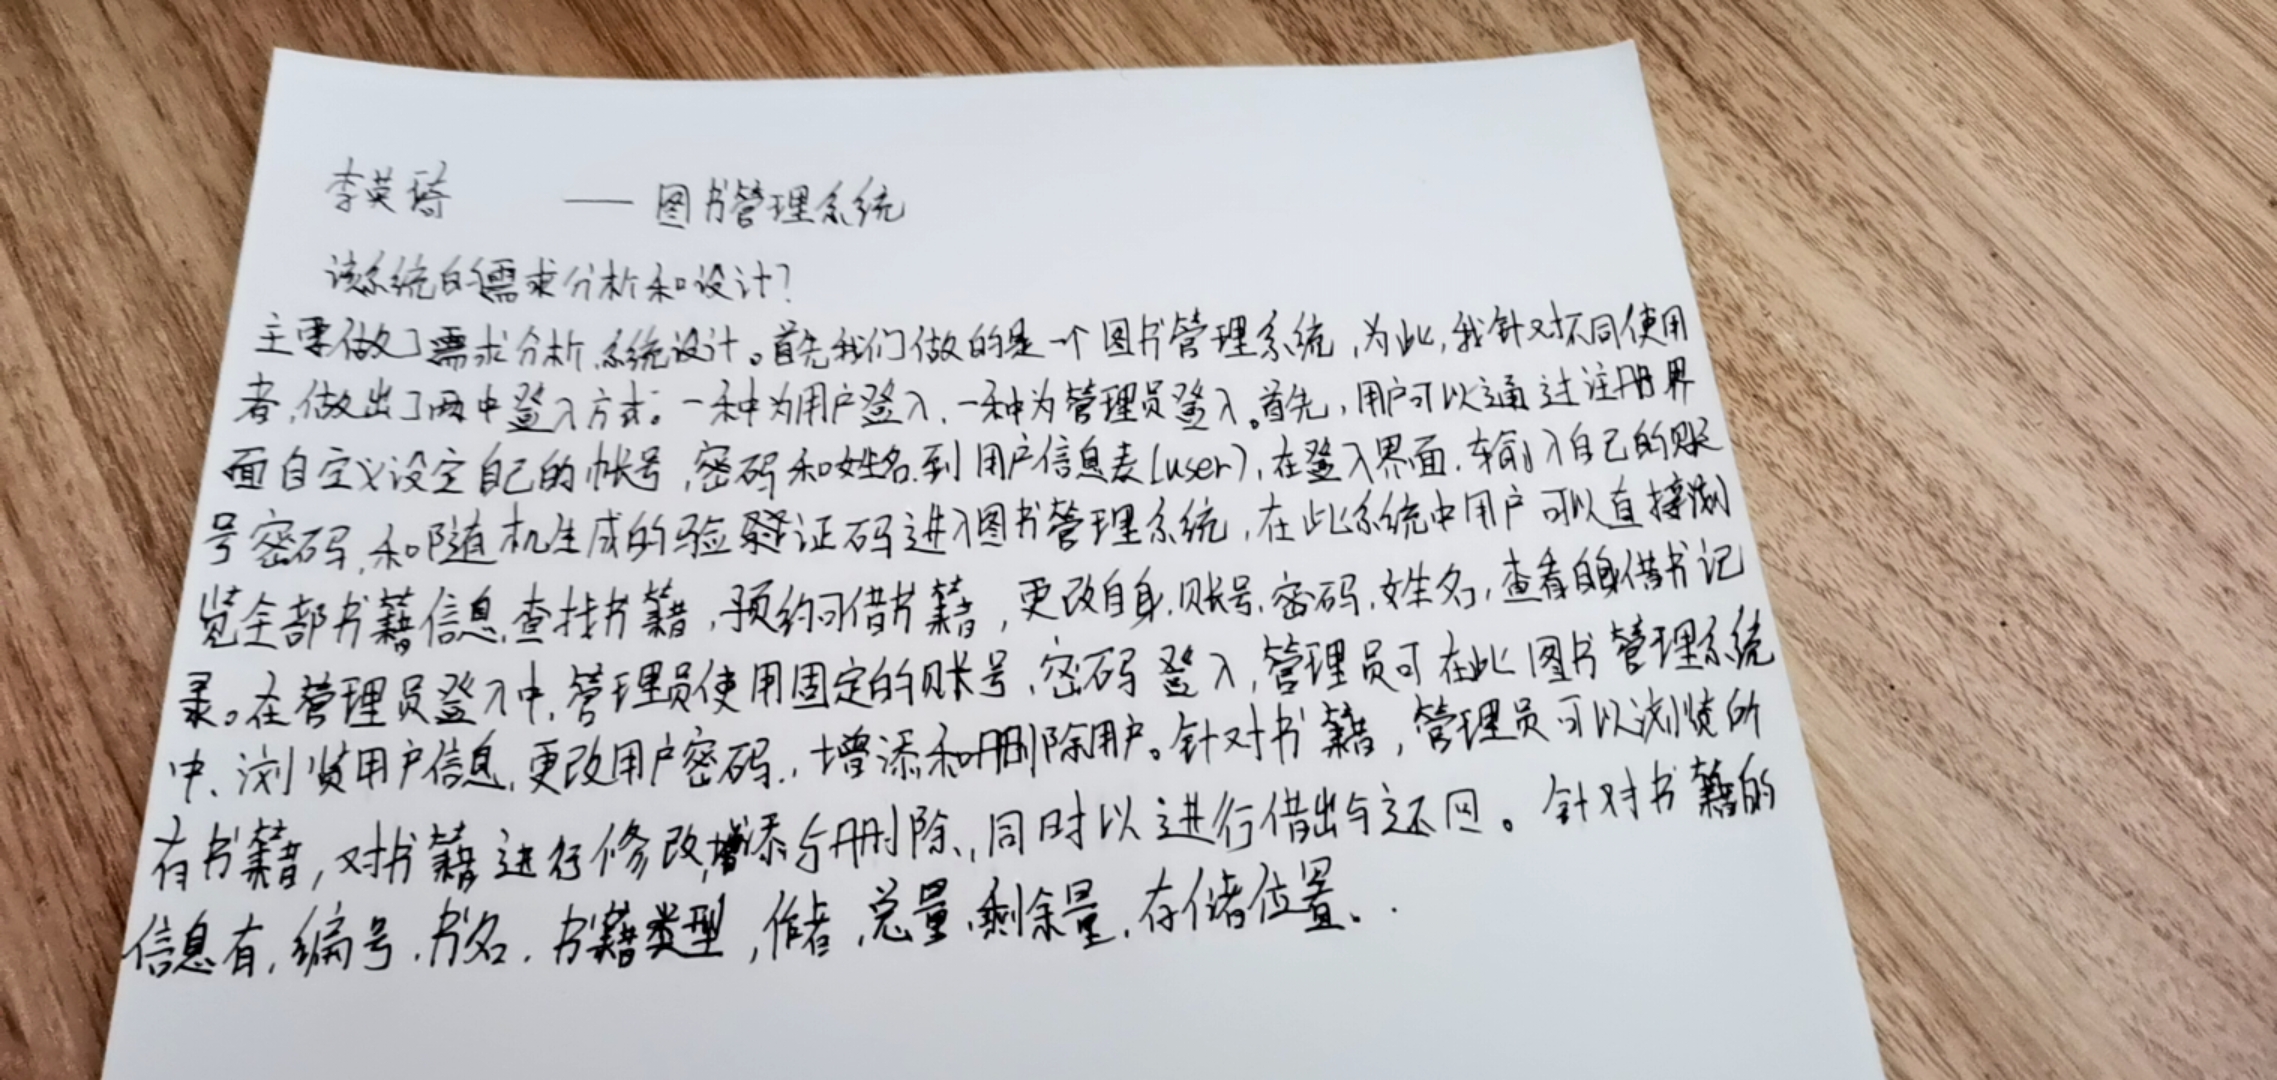 李英琦 —— 图书管理系统
该系统的需求分析和设计？
主要做了需求分析、系统设计。首先我们做的是一个图书管理系统，为此，我针对不同使用
者，做出了两中登入方式：一种为用户登入，一种为管理员登入。首先，用户可以通过注册界
面自定义设定自己的帐号，密码和姓名到用户信息表(user)，在登入界面，输入自己的账
号密码，和随机生成的验证码进入图书管理系统，在此系统中用户可以直接浏
览全部书籍信息，查找书籍，预约可借书籍，更改自身账号、密码、姓名，查看自身借书记
录。在管理员登入中，管理员使用固定的账号，密码登入，管理员可在此图书管理系统
中、浏览用户信息，更改用户密码，增添和删除用户。针对书籍，管理员可以浏览所
有书籍，对书籍进行修改，增添与删除，同时以进行借出与还回。针对书籍的
信息有，编号，书名，书籍类型，作者，总量，剩余量，存储位置。